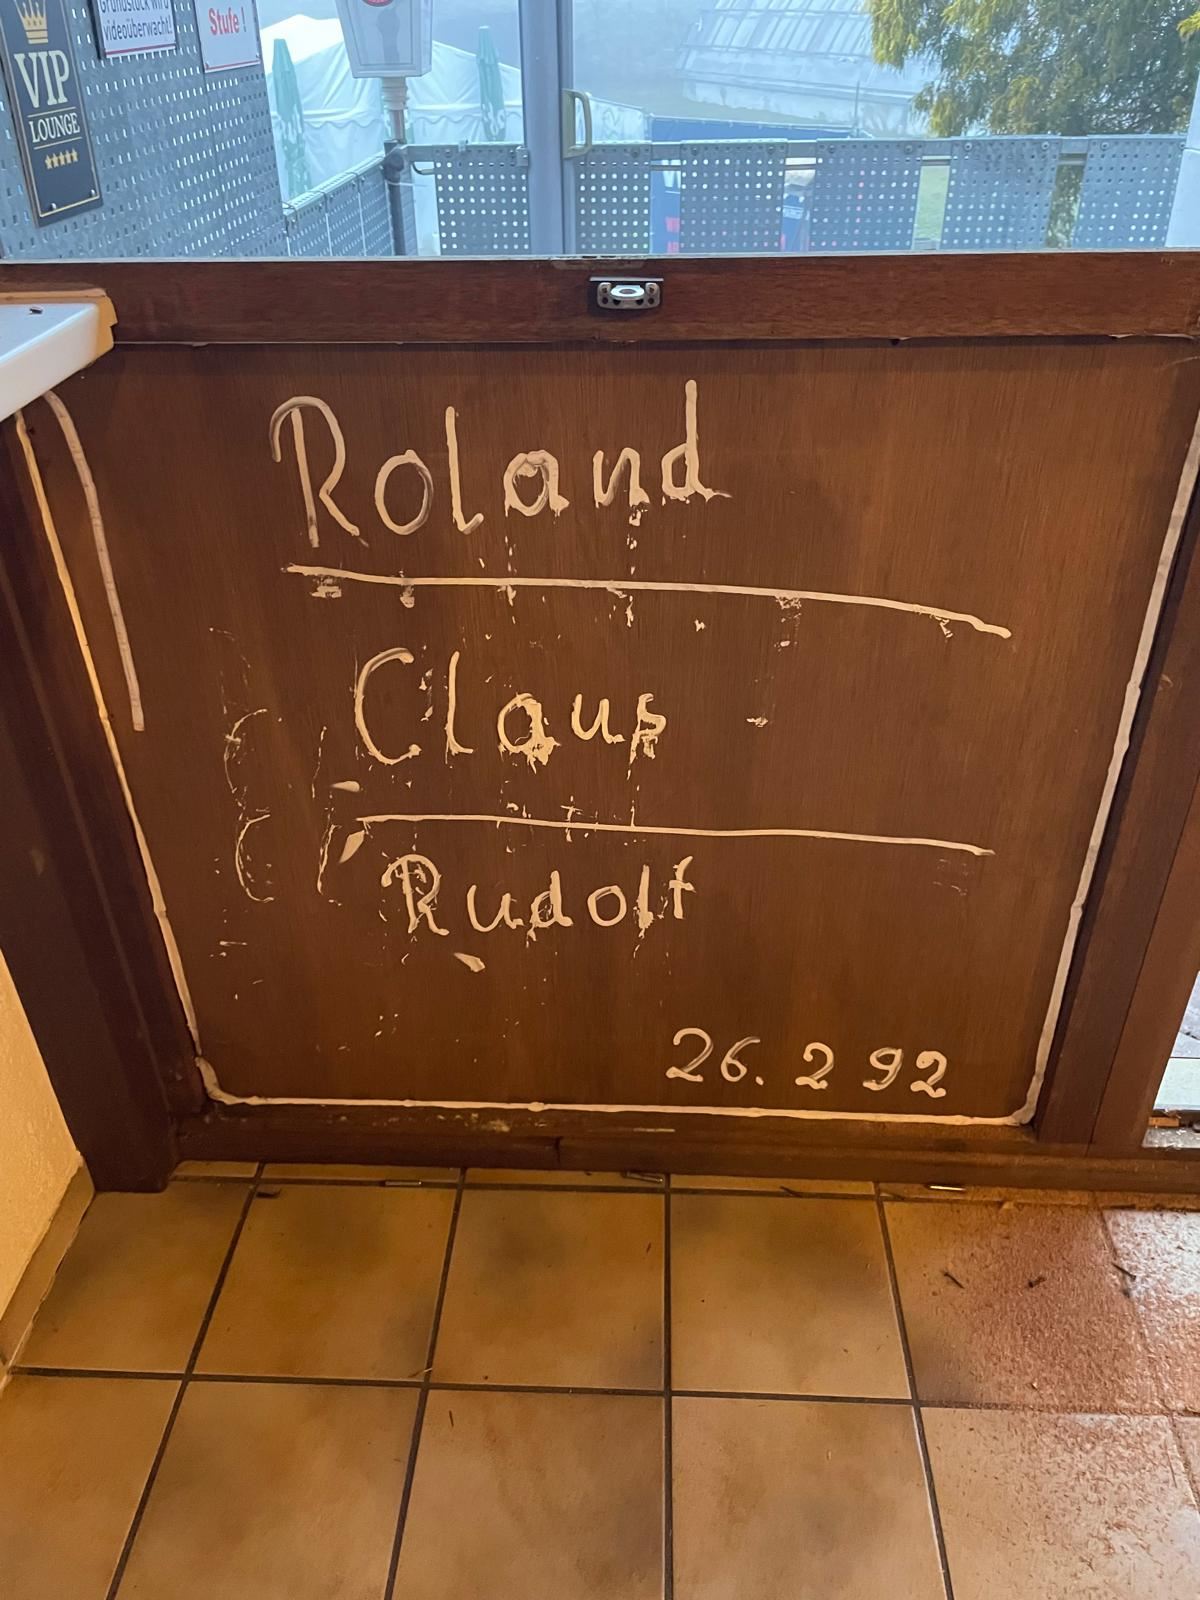 Grundstück wird
videoüberwacht!
Stufe !
VIP
LOUNGE
Roland
Claus
Rudolf
26. 2 92